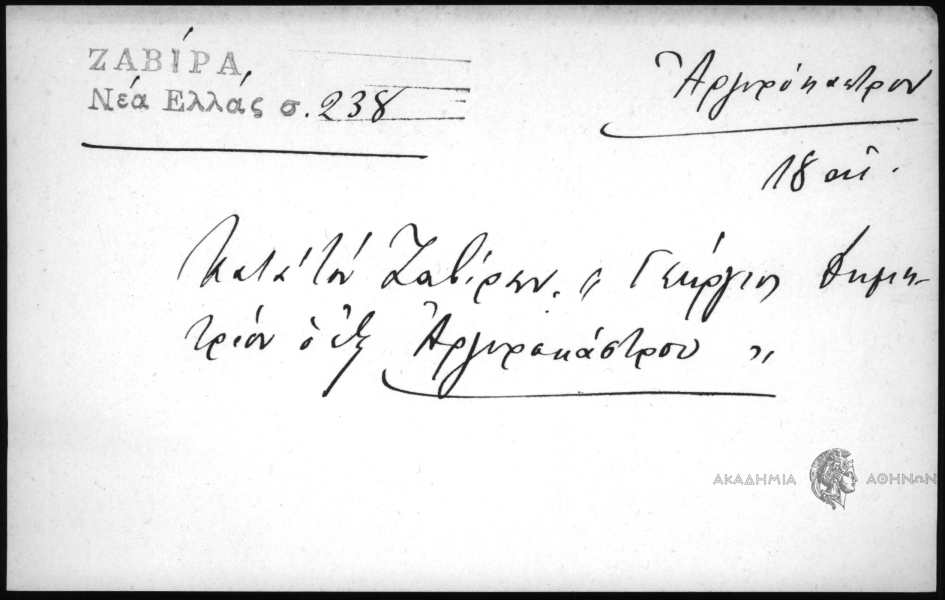 ΖΑΒΙΡΑ
Νέα Ελλάς σ. 238
Ἀργυρόκαστρον
18 αἰ.
Κατὰ τὸν Ζαβίραν. „ Γεώργιος Δημη-
τρίου ὁ ἐξ Ἀργυροκάστρου "
ΑΚΑΔΗΜΙΑ ΑΘΗΝΩΝ